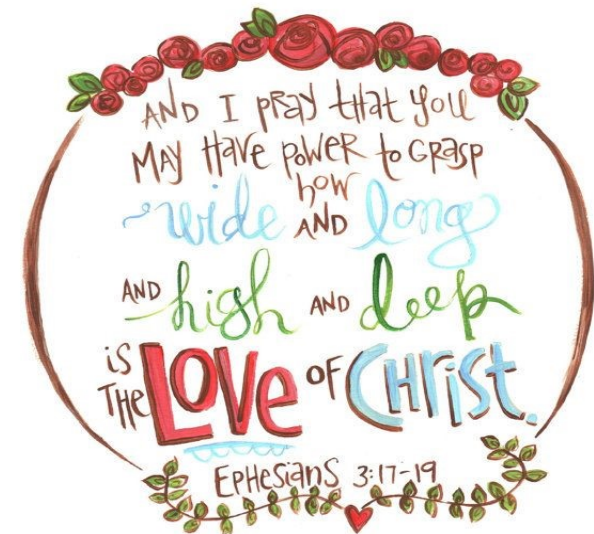 AND I PRAY that you
MAY HAVE POWER to GRASP
how
wide AND long
AND high AND deep
is
THE LOVE OF CHRIST.
EPHESIANS 3:17-19